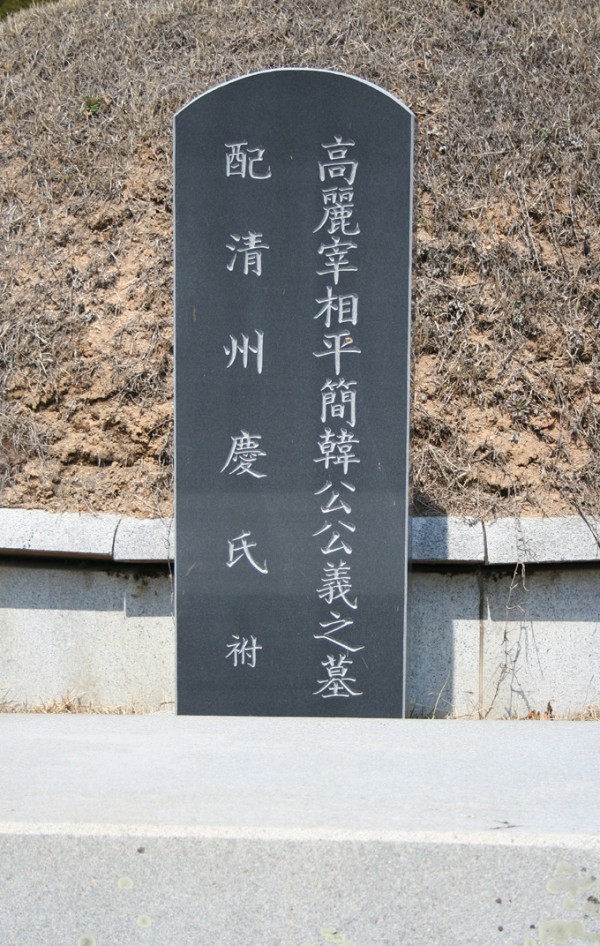 高麗宰相平簡韓公公義之墓
配清州慶氏祔